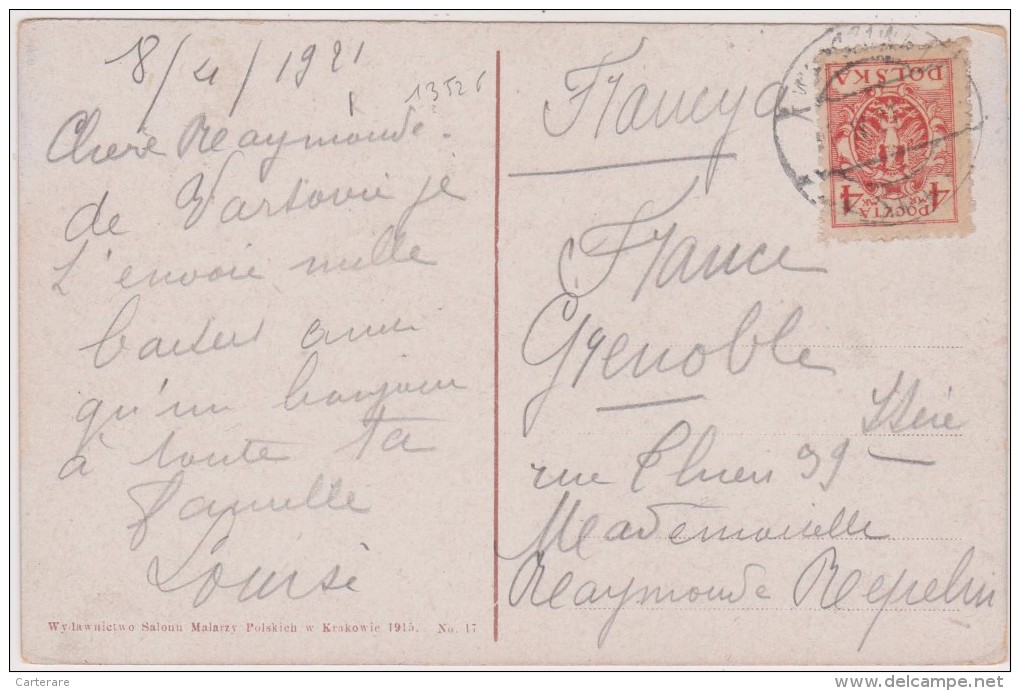 8/4/1921
13526
Chere Raymonde.
de Varsovie je
t'envoie mille
baisers ainsi
qu'un bonjour
à toute ta
famille
Louise
Wydawnictwo Salonu Malarzy Polskich w Krakowie 1915. No. 17
Francya
France
Grenoble
Isère
rue 99
Mademoiselle
Raymonde Repelin
POLSKA
4 4
POCZTA
Carterare
www.delcampe.net